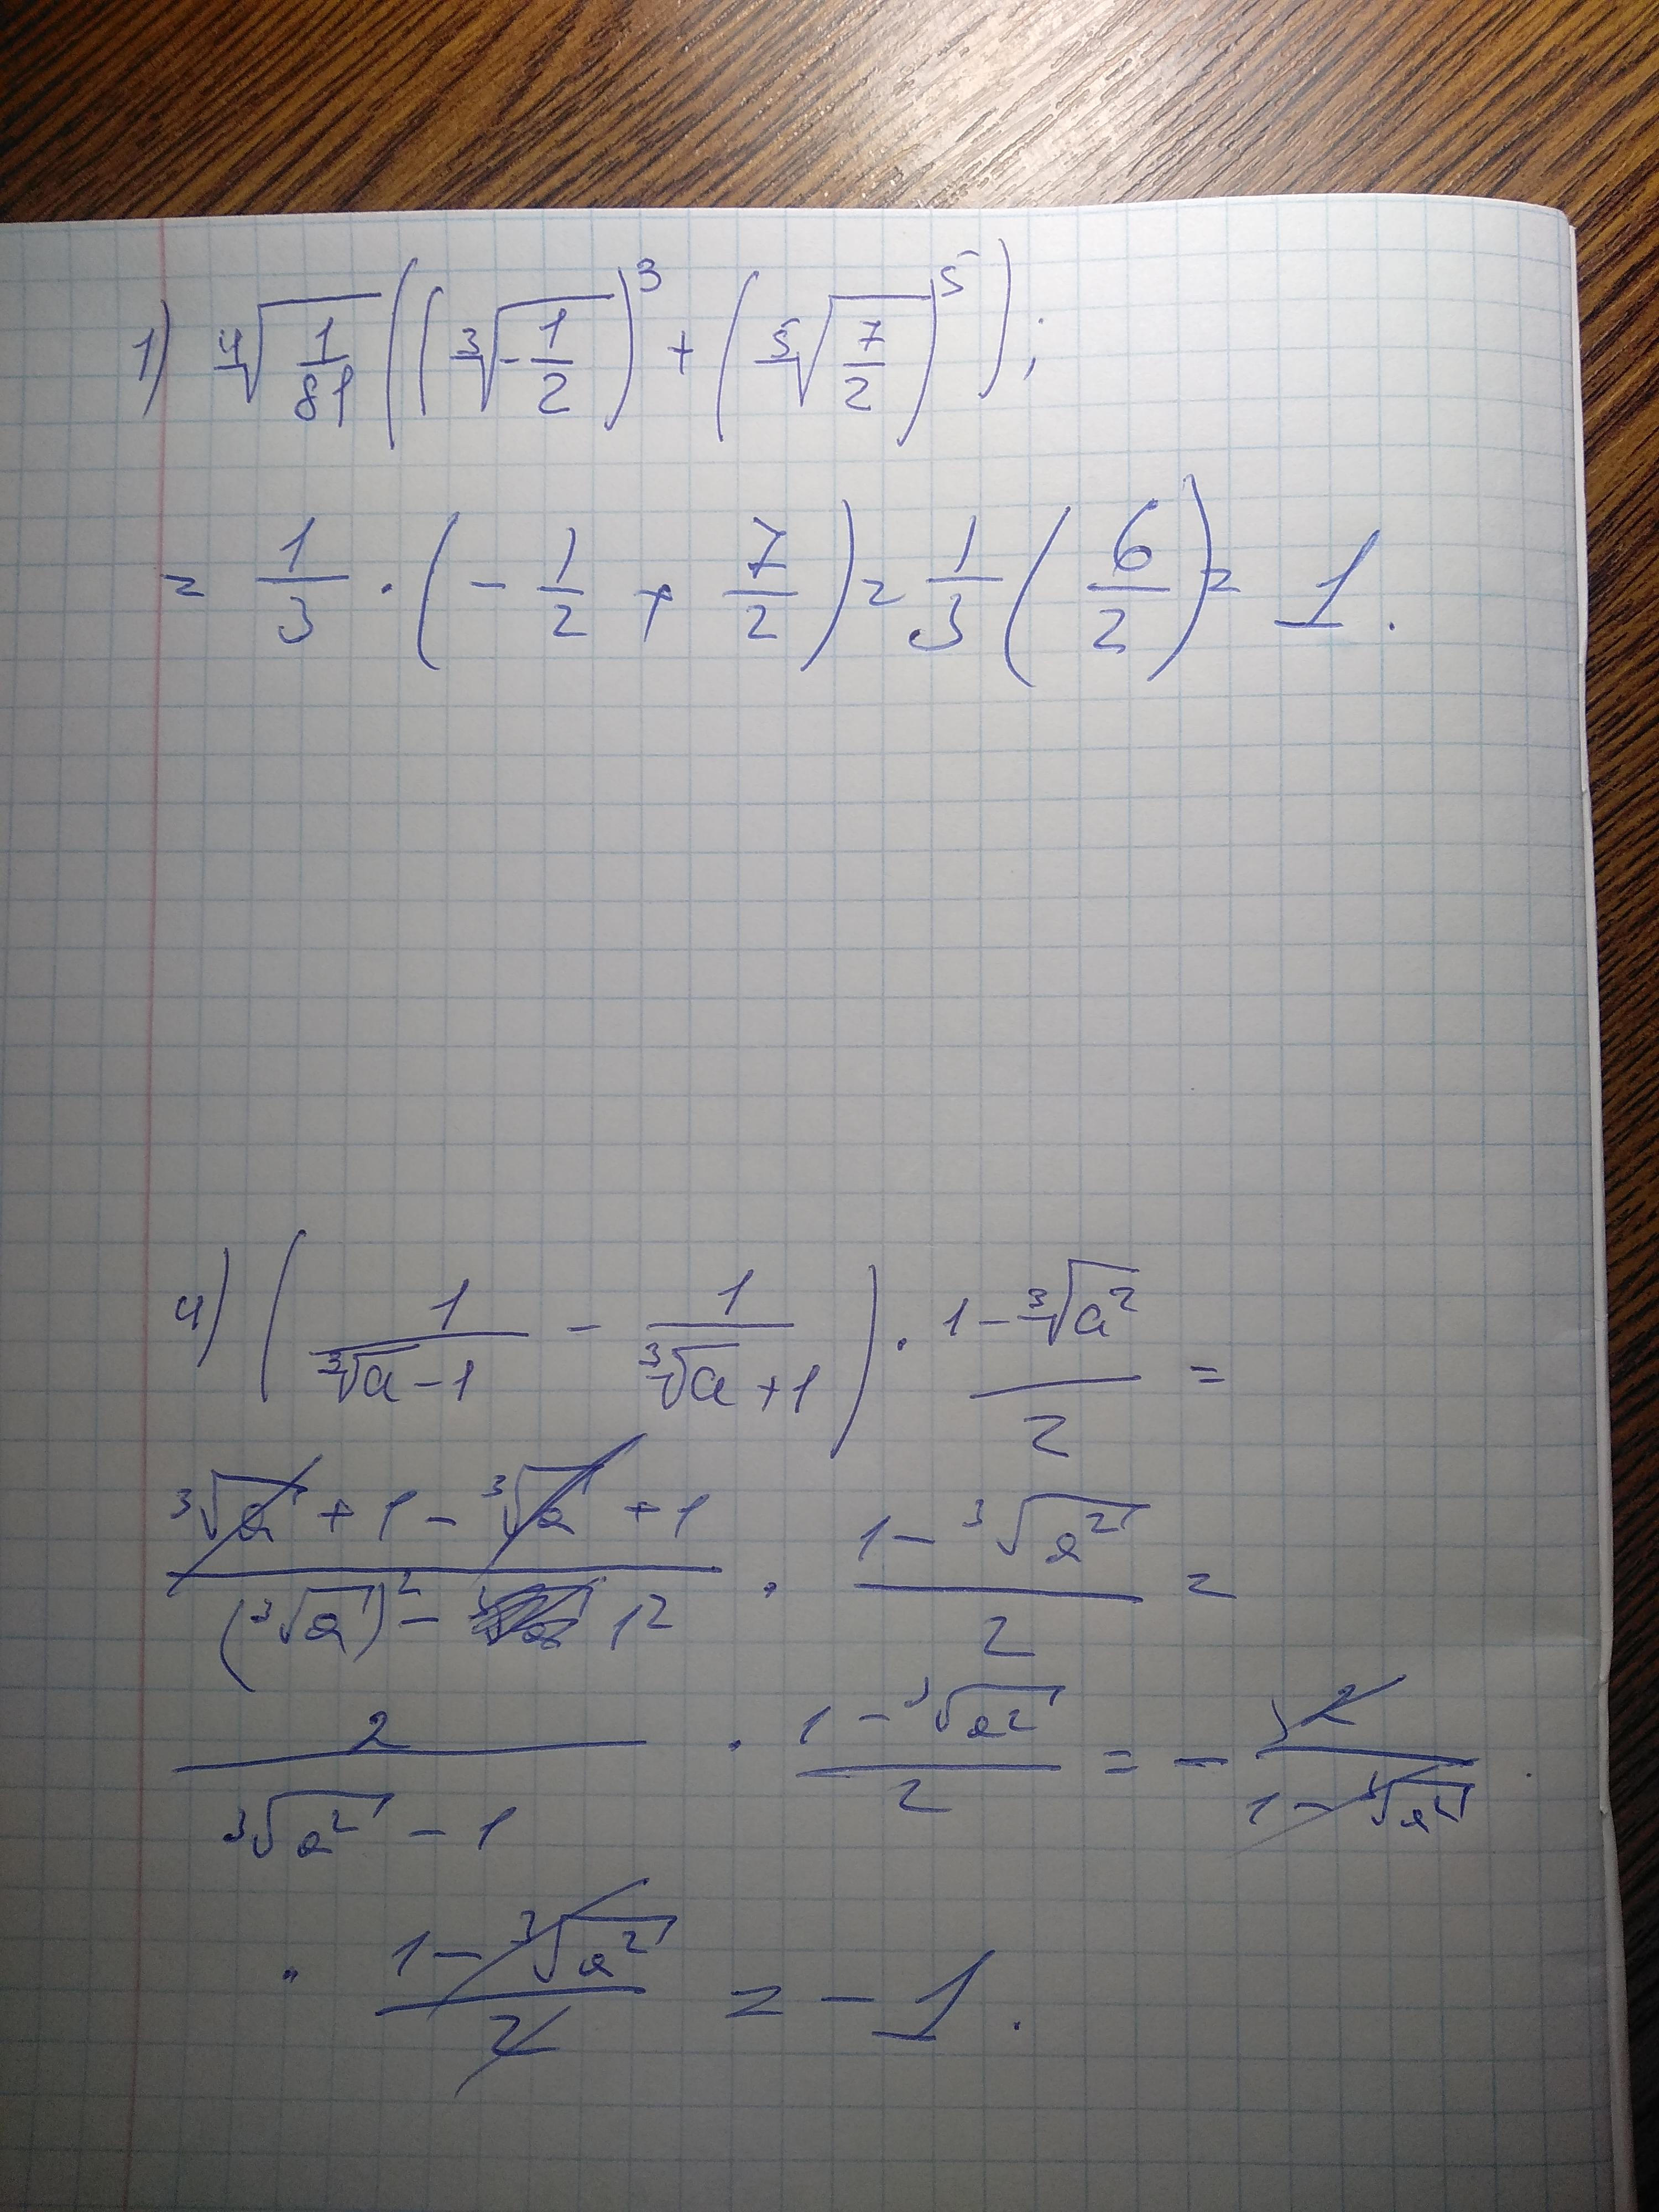 1) ⁴√(1/81) ((³√(-1/2))³ + (⁵√(7/2))⁵);
= 1/3 · (- 1/2 + 7/2) = 1/3 (6/2) = 1.
4) (1/(³√a - 1) - 1/(³√a + 1)) · (1 - ³√a²)/2 =
(³√a + 1 - ³√a + 1)/((³√a)² - 1²) · (1 - ³√a²)/2 =
2/(³√a² - 1) · (1 - ³√a²)/2 = - 2/(1 - ³√a²) .
· (1 - ³√a²)/2 = - 1.